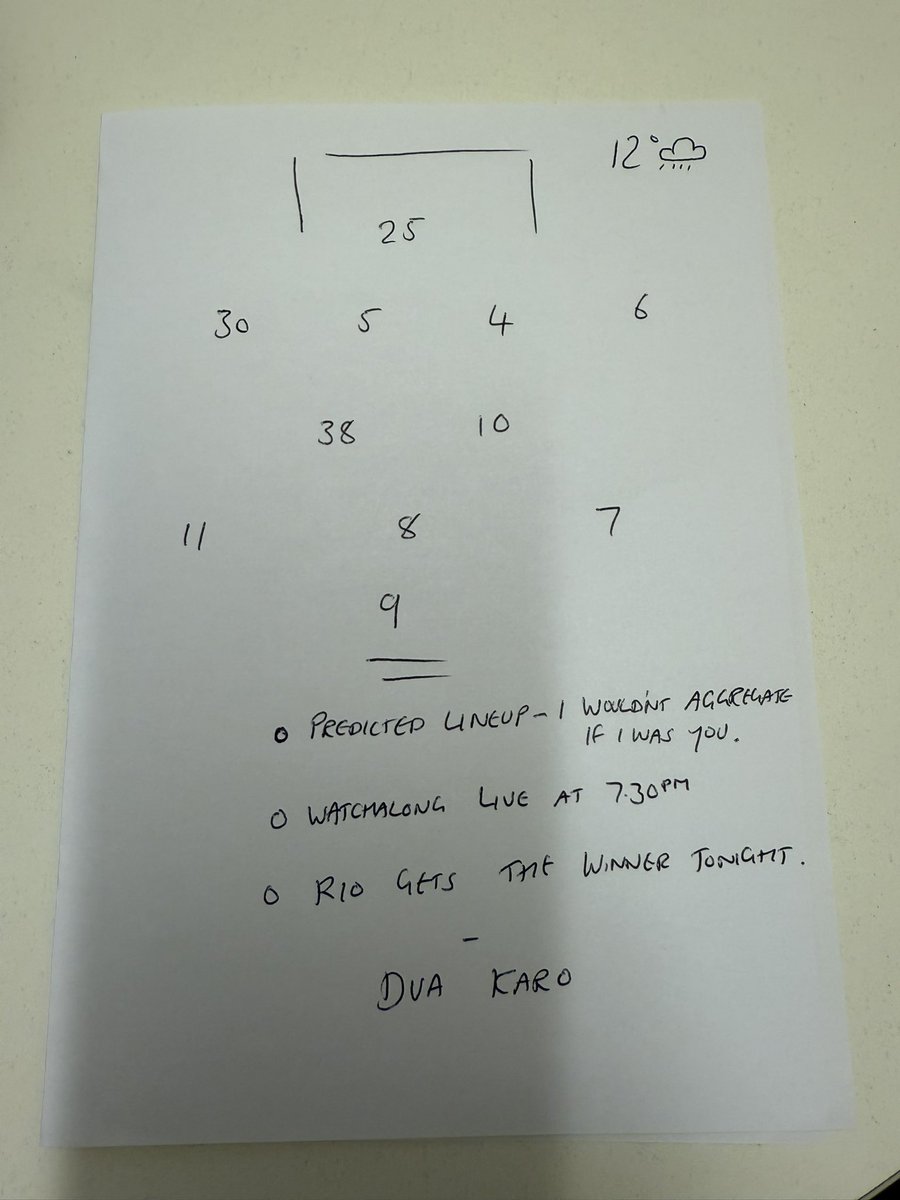 12°
25
30 5 4 6
38 10
11 8 7
9
o PREDICTED LINEUP - I WOULDN'T AGGREGATE
IF I WAS YOU.
o WATCHALONG LIVE AT 7.30PM
o RIO GETS THE WINNER TONIGHT.
-
DUA KARO